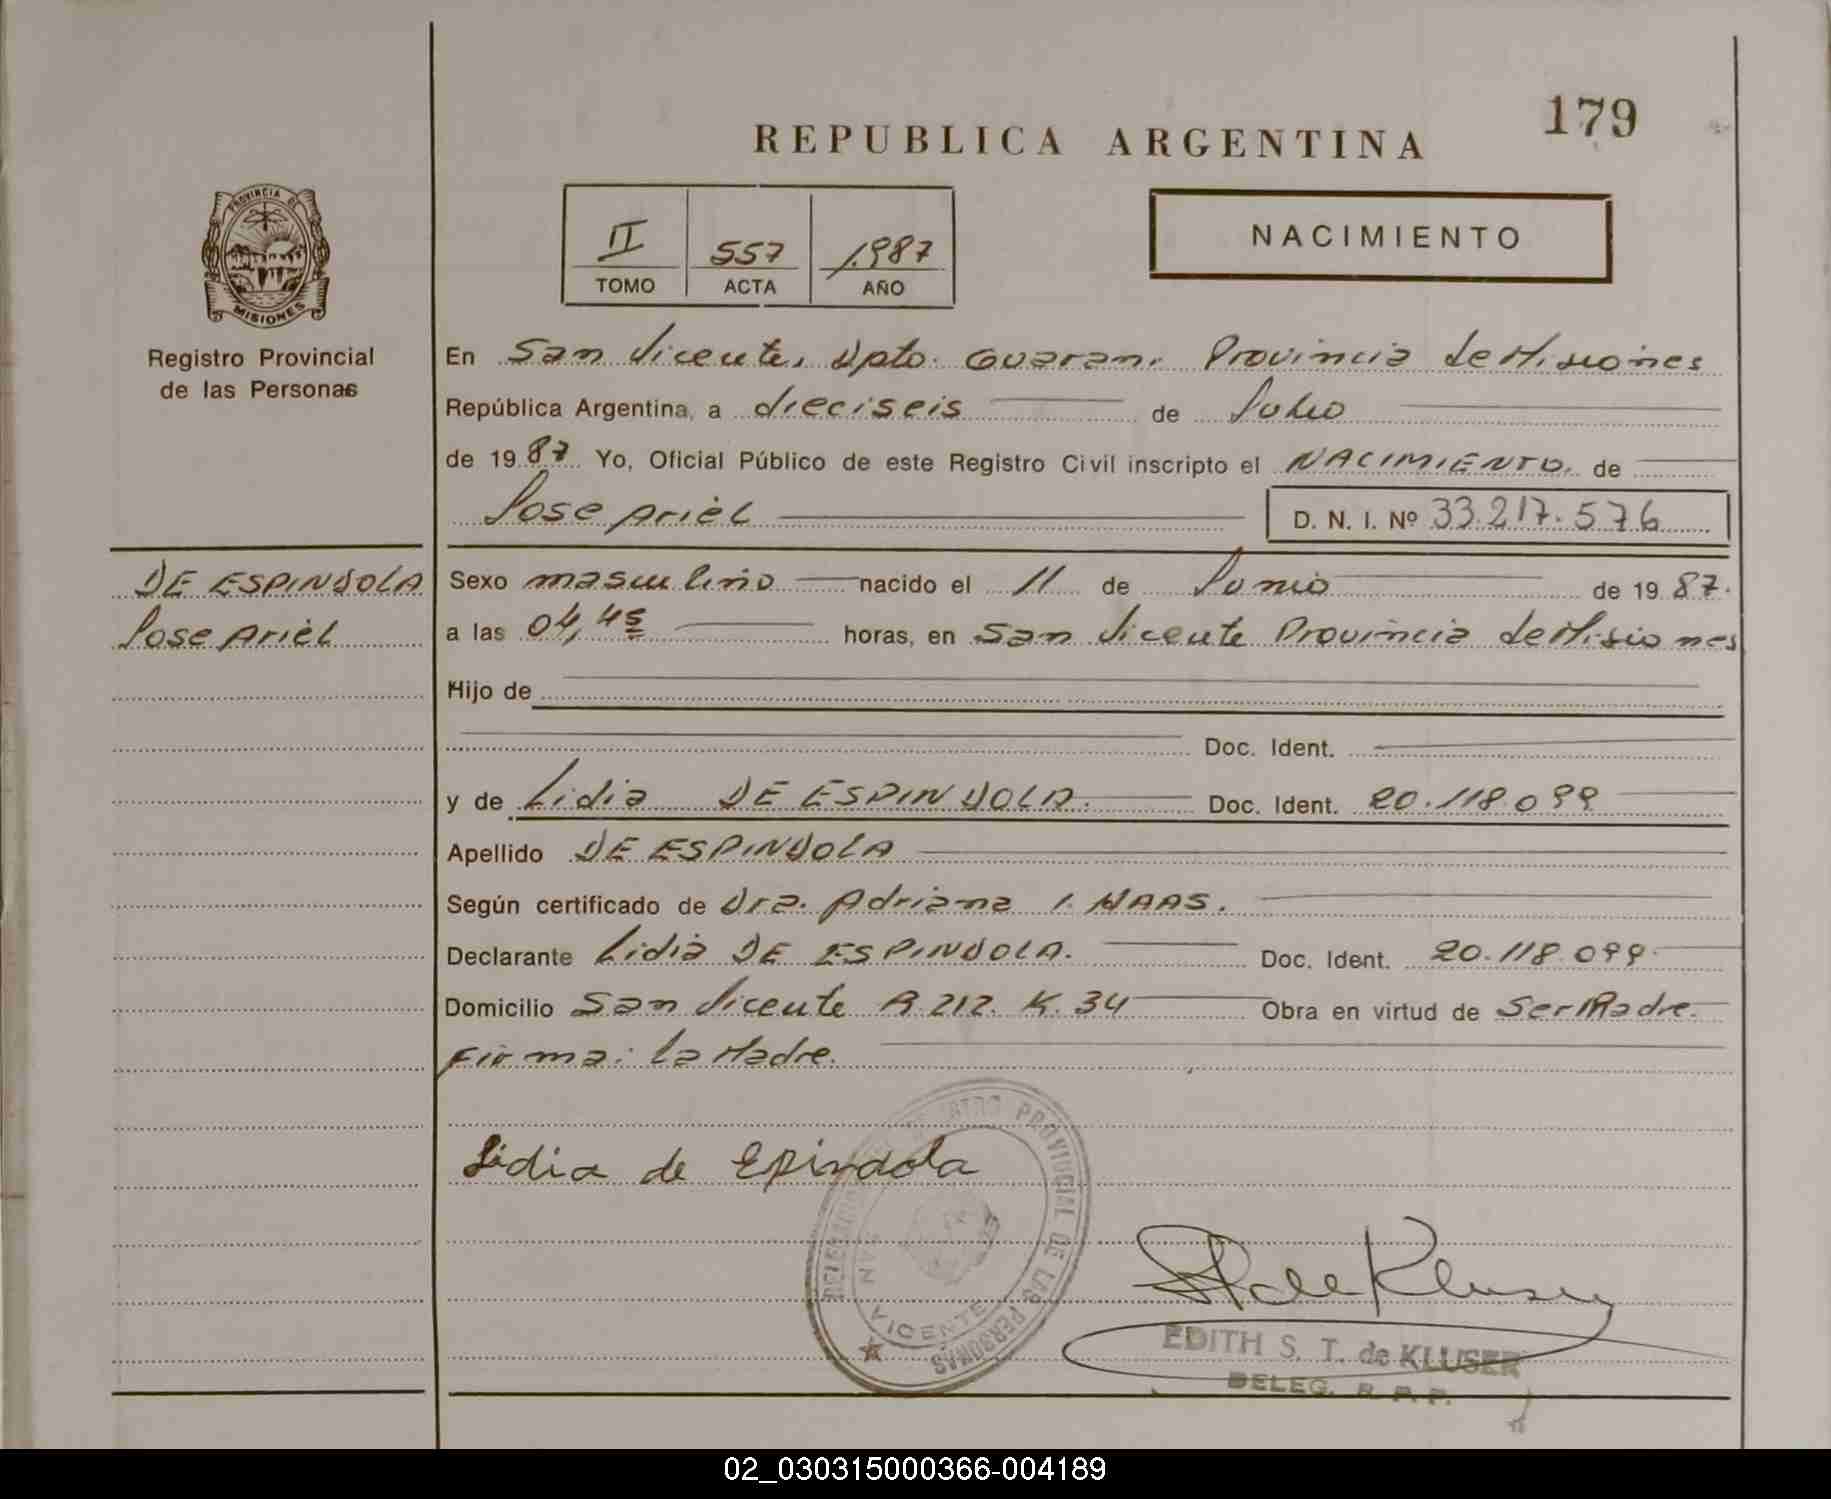 179
REPUBLICA ARGENTINA
II 557 1.987
TOMO ACTA AÑO
NACIMIENTO
PROVINCIA DE
MISIONES
Registro Provincial
de las Personas
DE ESPINDOLA
Jose Ariel
En San Vicente, Dpto. Guarani Provincia de Misiones
República Argentina, a dieciseis de Julio
de 1987 Yo, Oficial Público de este Registro Civil inscripto el NACIMIENTO, de
Jose Ariel D. N. I. Nº 33.217.576
Sexo masculino nacido el 11 de Junio de 1987.
a las 04,45 horas, en San Vicente Provincia de Misiones
Hijo de
Doc. Ident.
y de Lidia DE ESPINDOLA. Doc. Ident. 20.118.099
Apellido DE ESPINDOLA
Según certificado de Dra. Adriana I. HAAS.
Declarante Lidia DE ESPINDOLA. Doc. Ident. 20.118.099.
Domicilio San Vicente R.212. K.34 Obra en virtud de Ser Madre.
Firma: La Madre.
Lidia de Epindola
REGISTRO PROVINCIAL DE LAS PERSONAS
SAN VICENTE
EDITH S. T. de KLUSER
DELEG. R. P. P.
02_030315000366-004189